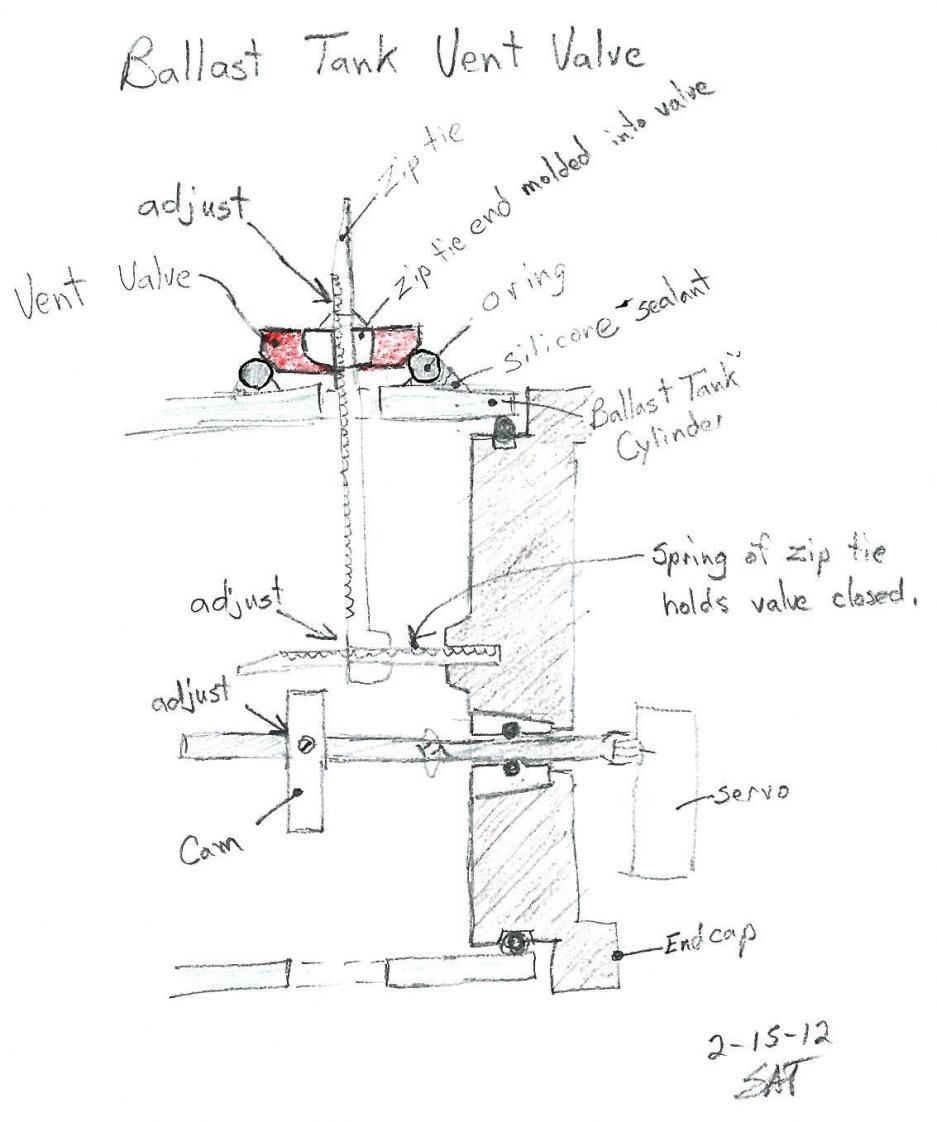 Ballast Tank Vent Valve
zip tie
adjust
zip tie end molded into valve
Vent Valve
o ring
silicone sealant
Ballast Tank
Cylinder
Spring of zip tie
holds valve closed.
adjust
adjust
servo
Cam
Endcap
2-15-12
SAT